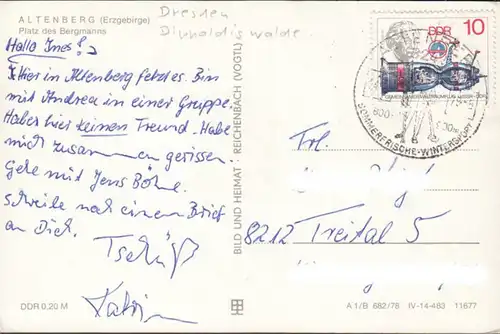 ALTENBERG (Erzgebirge)
Platz des Bergmanns
Dresden
Dippoldiswalde
Hallo Ines!
Hier in Altenberg fetzt es. Bin
mit Andrea in einer Gruppe.
Habe hier keinen Freund. Habe
mich zusammen gerissen.
Gehe mit Jens Böhme.
Schreibe noch einen Brief
an Dich.
Tschüß
Katrin
DDR 0,20 M
BILD UND HEIMAT REICHENBACH (VOGTL)
DDR 10
800-
SOMMERFRISCHE-WINTERSPORT
Frl.
8212 Freital 5
A 1/B 682/78 IV-14-483 11677